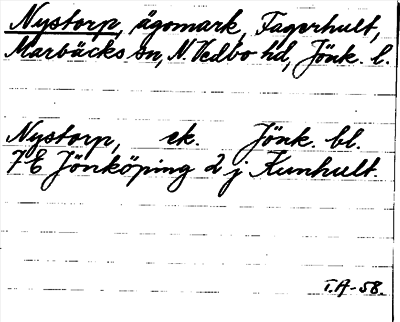 Nystorp, ägomark, Fagerhult,
Marbäcks sn, N. Vedbo hd, Jönk. l.
Nystorp, ek. Jönk. bl.
7E Jönköping 2 j Kunhult
T.A-58.